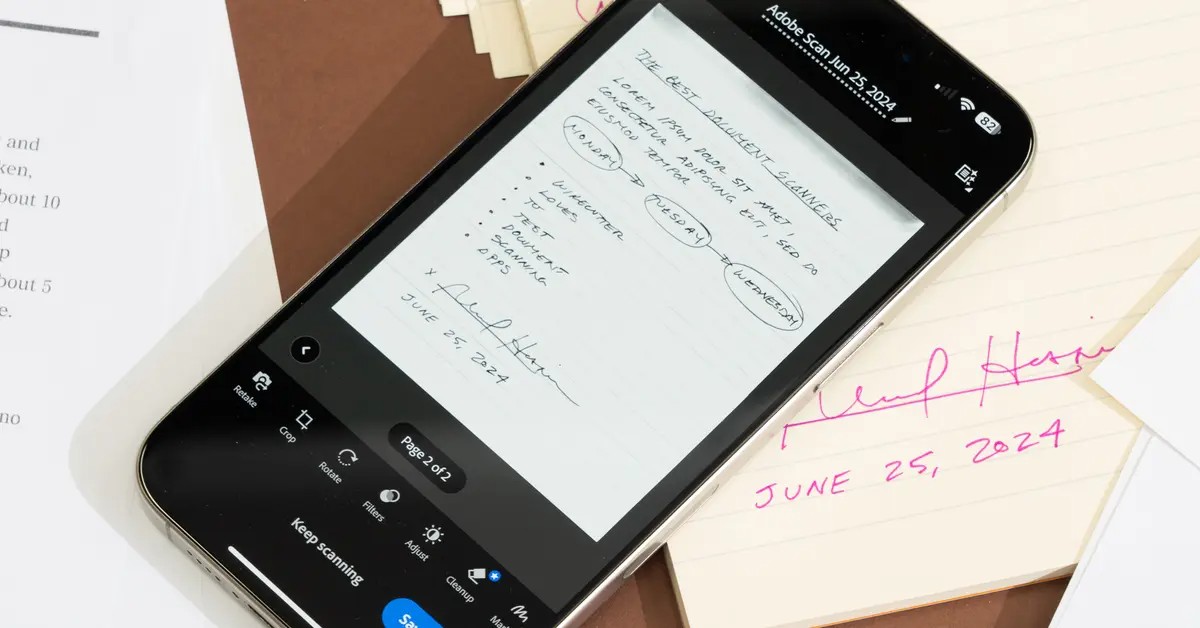 and
ken,
bout 10
d
p
bout 5
e.
no
Adobe Scan Jun 25, 2024
82
THE BEST DOCUMENT SCANNERS
LOREM IPSUM DOLOR SIT AMET,
CONSECTETUR ADIPISCING ELIT, SED DO
EIUSMOD TEMPOR
MONDAY → TUESDAY → WEDNESDAY
• WIRECUTTER
• LOVES
• TO
• TEST
• DOCUMENT
• SCANNING
• APPS
x
JUNE 25, 2024
Page 2 of 2
Retake
Crop
Rotate
Filters
Adjust
Cleanup
Keep scanning
JUNE 25, 2024